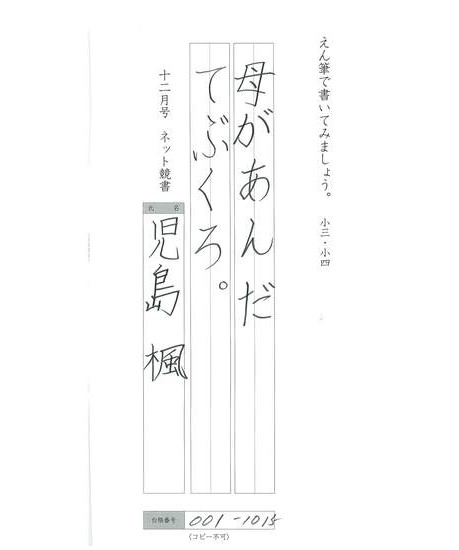 えん筆で書いてみましょう。 小三・小四
母があんだ
てぶくろ。
十二月号 ネット競書
氏名
児島 楓
合格番号 001-1015
(コピー不可)